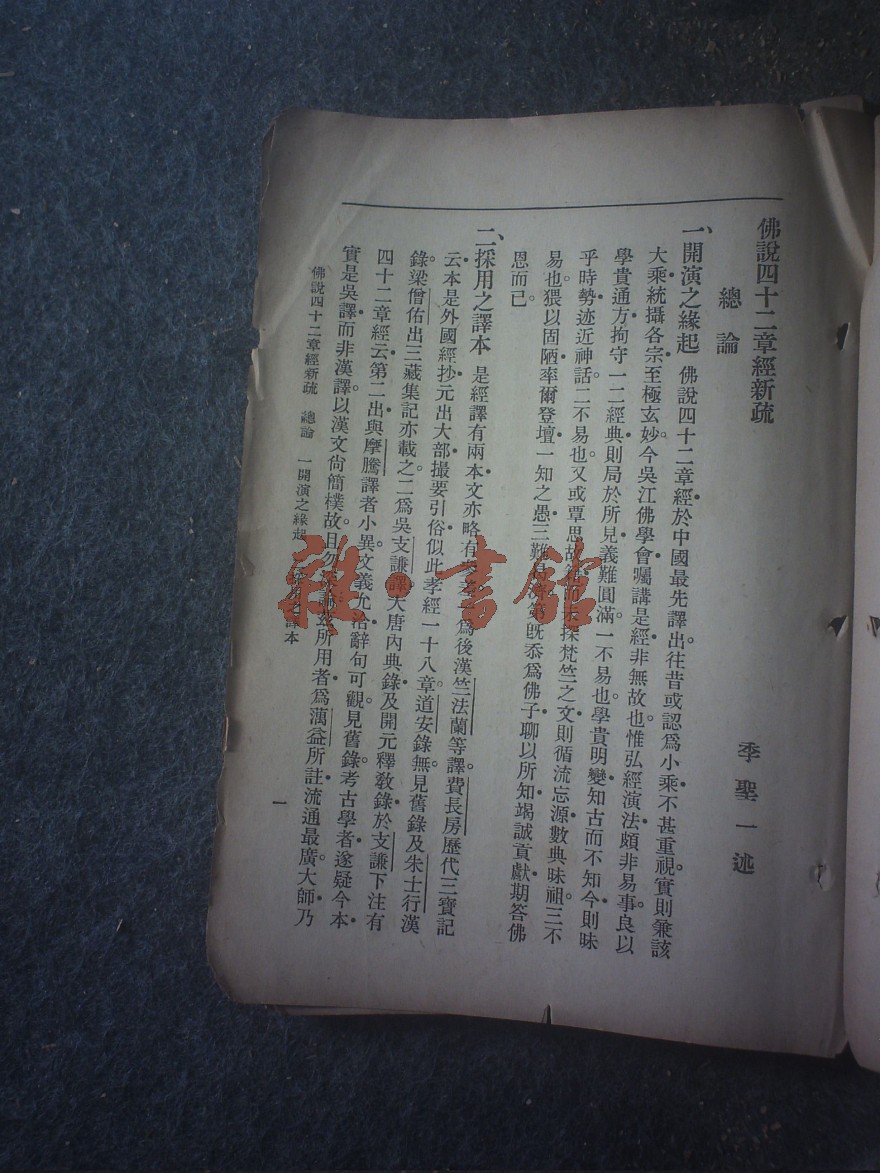 佛說四十二章經新疏
總論
季聖一述
一、開演之緣起 佛說四十二章經。於中國最先譯出。往昔或認爲小乘。不甚重視。實則兼該
大乘。統攝各宗。至極玄妙。今吳江佛學會囑講是經。非無故也。惟弘經演法。頗非易事。良以
學貴通方。拘守一二經典。則局於所見。義難圓滿。一不易也。學貴明變。知古而不知今。則昧
乎時勢。迹近神話。二不易也。又或覃思故 而未探梵竺之文。則循流忘源。數典昧祖。三不
易也。猥以固陋。率爾登壇。一知之愚。三難 第旣忝爲佛子。聊以所知。竭誠貢獻。期答佛
恩而已。
二、採用之譯本 是經譯有兩本。文亦略有 一爲後漢竺法蘭等譯。費長房歷代三寶記
云。本是外國經抄。元出大部。撮要引俗。似此孝經一十八章。道安錄無。見舊錄及朱士行漢
錄。梁僧佑出三藏集記亦載之。二爲吳支謙譯。大唐內典錄及開元釋敎錄。於支謙下注有
四十二章經。云第二出。與摩騰譯者小異。文義允洽。辭句可觀。見舊錄。考古學者。遂疑今本
實是吳譯而非漢譯。以漢文尙簡樸故。且勿 論。茲所用者。爲蕅益所註。流通最廣。大師乃
佛說四十二章經新疏 總論 一開演之緣起 二採用之譯本
一
雜·書館